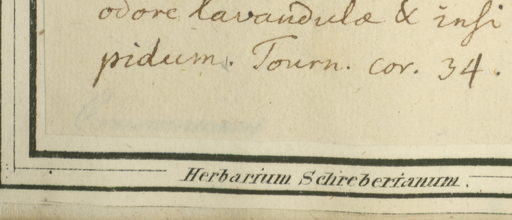 odore lavandulæ & insi
pidum. Tourn. cor. 34.
Herbarium Schreberianum.